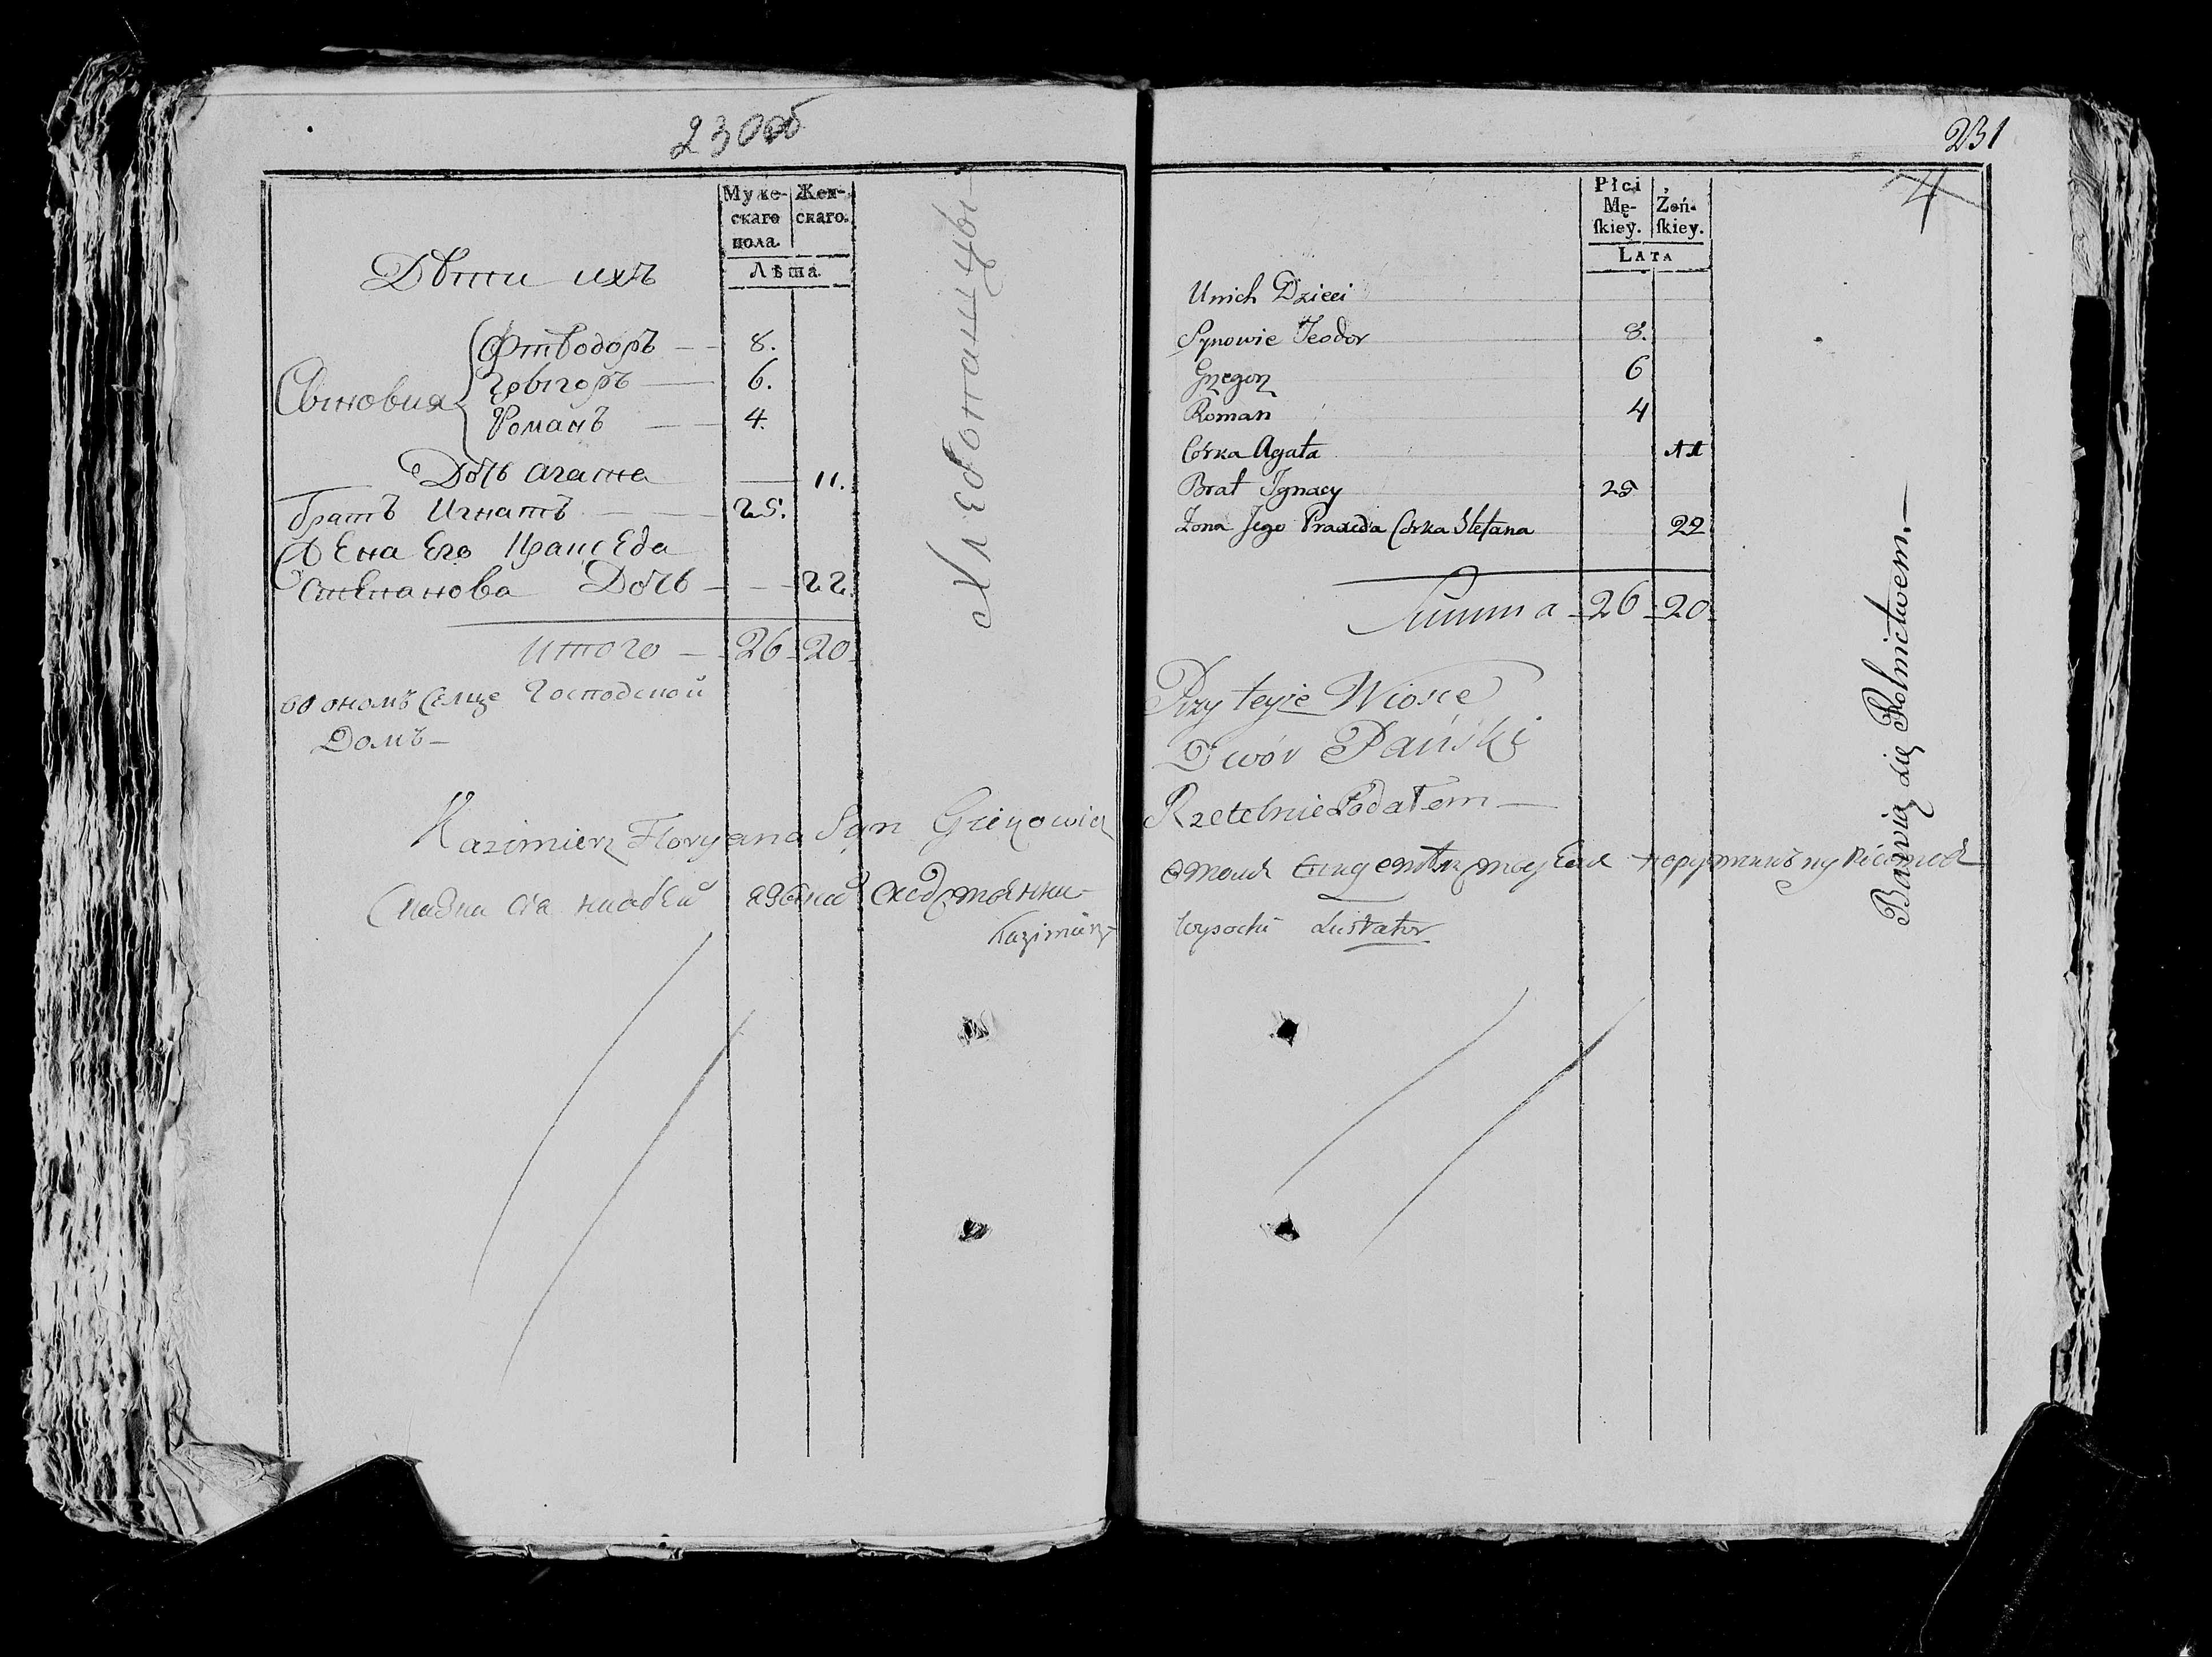 230об
Мужескаго пола.
Женскаго.
Лѣта
Дѣти ихъ
Сыновья
Фтѣодоръ — 8.
Грыгоръ — 6.
Романъ — 4.
Дочь Агата — 11.
братъ Игнатъ — 25.
Жена Его Пракседа
Степанова Дочь — 22.
Итого — 26 — 20
во ономъ Селце Господской
Домъ —
Хлебопашцы
Kazimierz Floryana Syn
Kazimierz
231
4
Płci
Mę-
skiey.
Żeń-
skiey.
LATA
U nich Dzieci
Synowie Teodor 8.
Grzegorz 6
Roman 4
Córka Agata 11
Brat Ignacy 25
Zona Jego Praxeda Corka Stefana 22
Summa 26 20
Przy teyże Wiosce
Dwór Pański
Rzetelnie Podałem —
Wysocki Lustrator
Bawią się Rolnictwem. —